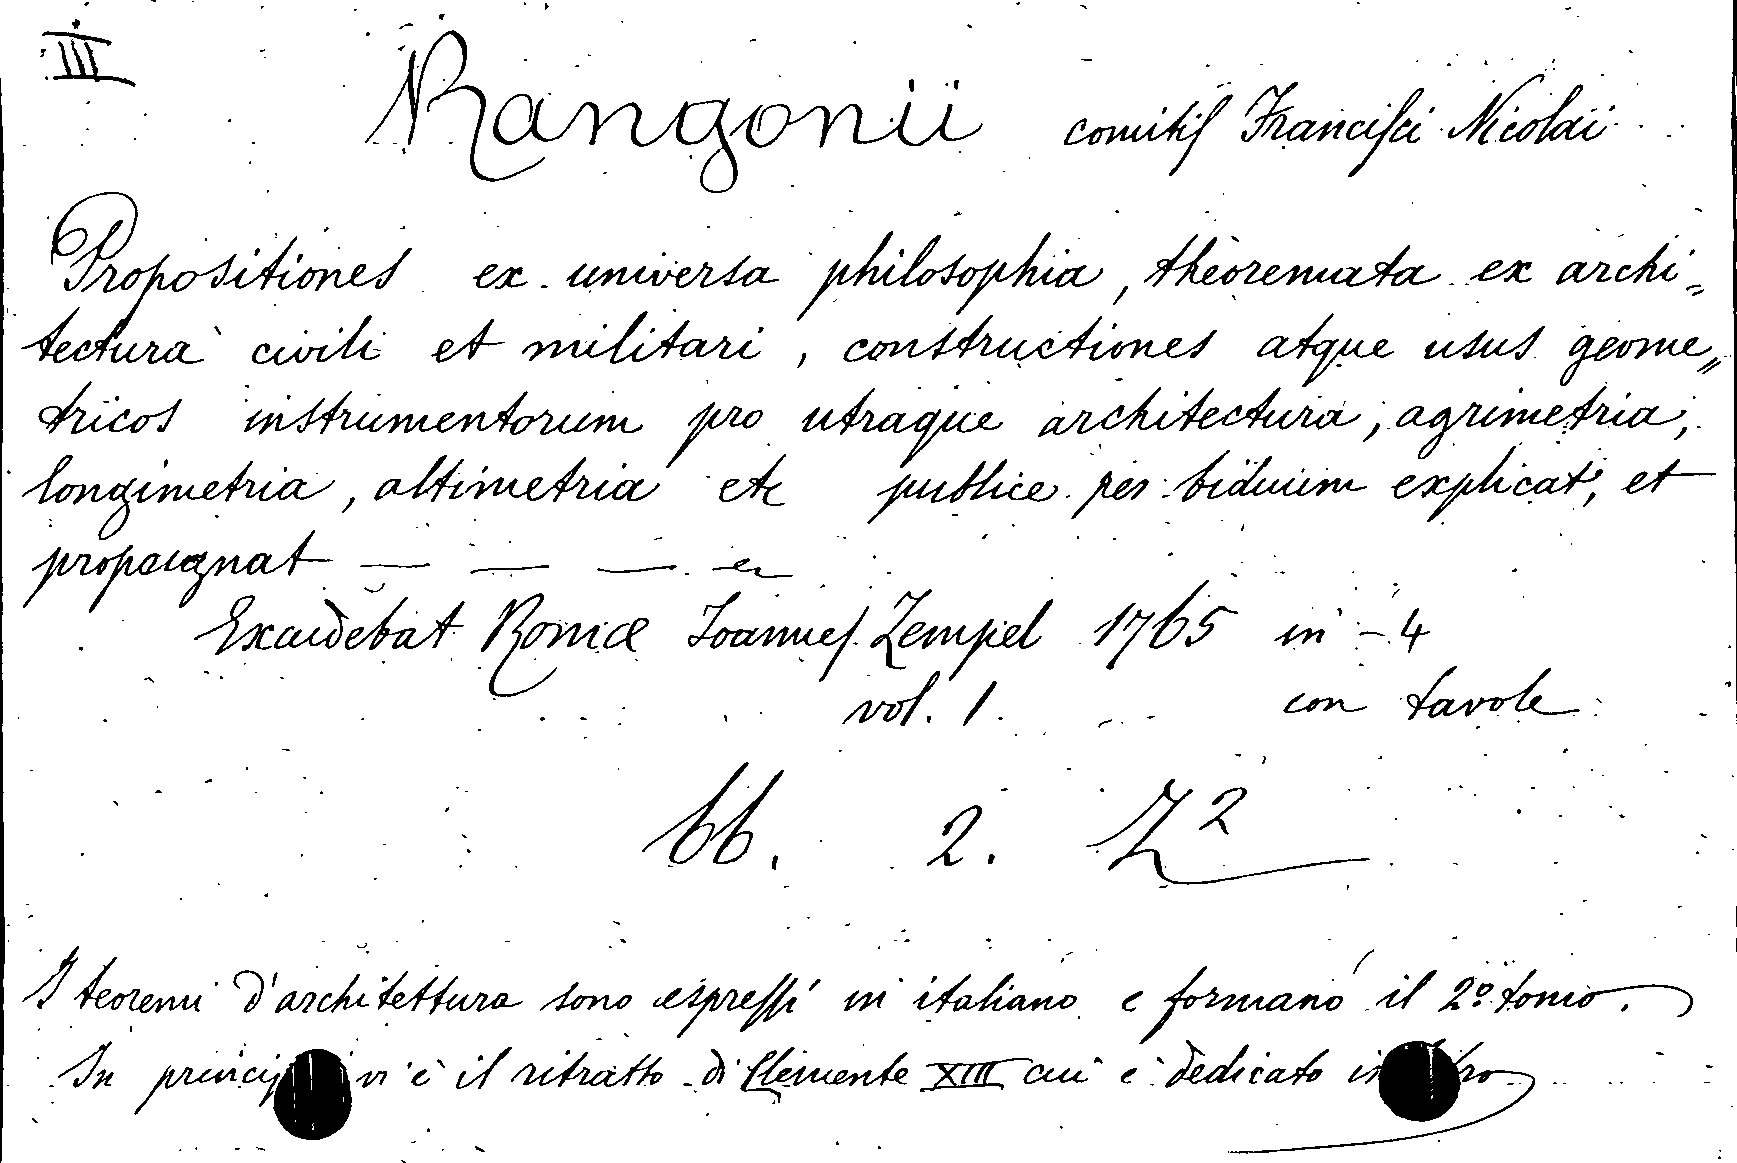 III
Rangonii comitis Francisci Nicolai
Propositiones ex universa philosophia, theoremata ex archi=
tectura civili et militari, constructiones atque usus geome=
tricos instrumentorum pro utraque architectura, agrimetria,
longimetria, altimetria etc publice per biduum explicat, et
propugnat — — — —
Excudebat Romæ Joannes Zempel 1765 in-4
vol. 1. con tavole
bb. 2. Z²
I teoremi d'architettura sono espressi in italiano e formano il 2º tomo.
In vi è il ritratto di Clemente XIII cui è dedicato